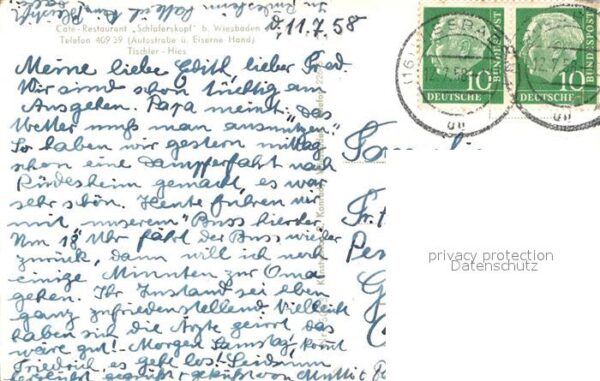 d. 11.7.58
Café-Restaurant „Schläferskopf" b. Wiesbaden
Telefon 409 39 (Autostraße u. Eiserne Hand)
Tischler - Hies
Meine liebe Edith, lieber Fred
Wir sind schon tüchtig am
Ausgehen. Papa meint: „das
Wetter muß man ausnutzen"
So haben wir gestern mittag
schon eine Dampferfahrt nach
Rüdesheim gemacht, es war
sehr schön. Heute fuhren wir
mit unserem Buss hierher
Um 18 Uhr fährt der Buss wieder
zurück, dann will ich noch
einige Minuten zur Oma
gehen. Ihr Zustand sei eben
ganz zufriedenstellend. Vielleicht
haben sich die Ärzte geirrt das
wäre gut! Morgen Samstag, komt
Friedrich, es geht los! Seid
gegrüßt geküßt von Mutti
Fr.
10
DEUTSCHE
BUNDESPOST
10
DEUTSCHE
BUNDESPOST
(16)
12.7.58
privacy protection
Datenschutz